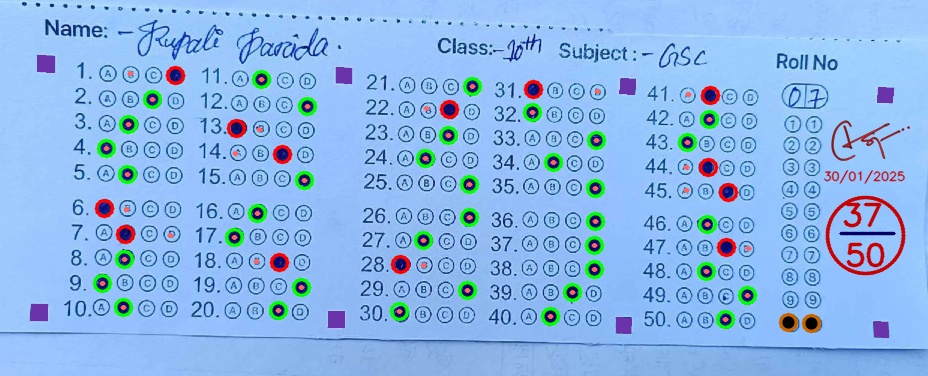 Name: - Rupali Parida. Class:- 10th Subject :- GSC Roll No
1. A B C
2. A B D
3. A C D
4. B C D
5. A C D
6. B C D
7. A C D
8. A C D
9. B C D
10. A C D
11. A C D
12. A B C
13. B C D
14. A B D
15. A B C
16. A C D
17. B C D
18. A B D
19. A B C
20. A B D
21. A B C
22. A B D
23. A B D
24. A C D
25. A B C
26. A B C
27. A C D
28. B C D
29. A B C
30. B C D
31. B C D
32. B C D
33. A B C
34. A C D
35. A B C
36. A B C
37. A B C
38. A B C
39. A B D
40. A C D
41. A C D
42. A C D
43. B C D
44. A C D
45. A B D
46. A C D
47. A B D
48. A C D
49. A B C
50. A B D
07
1 1
2 2
3 3
4 4
5 5
6 6
7 7
8 8
9 9
30/01/2025
37
50